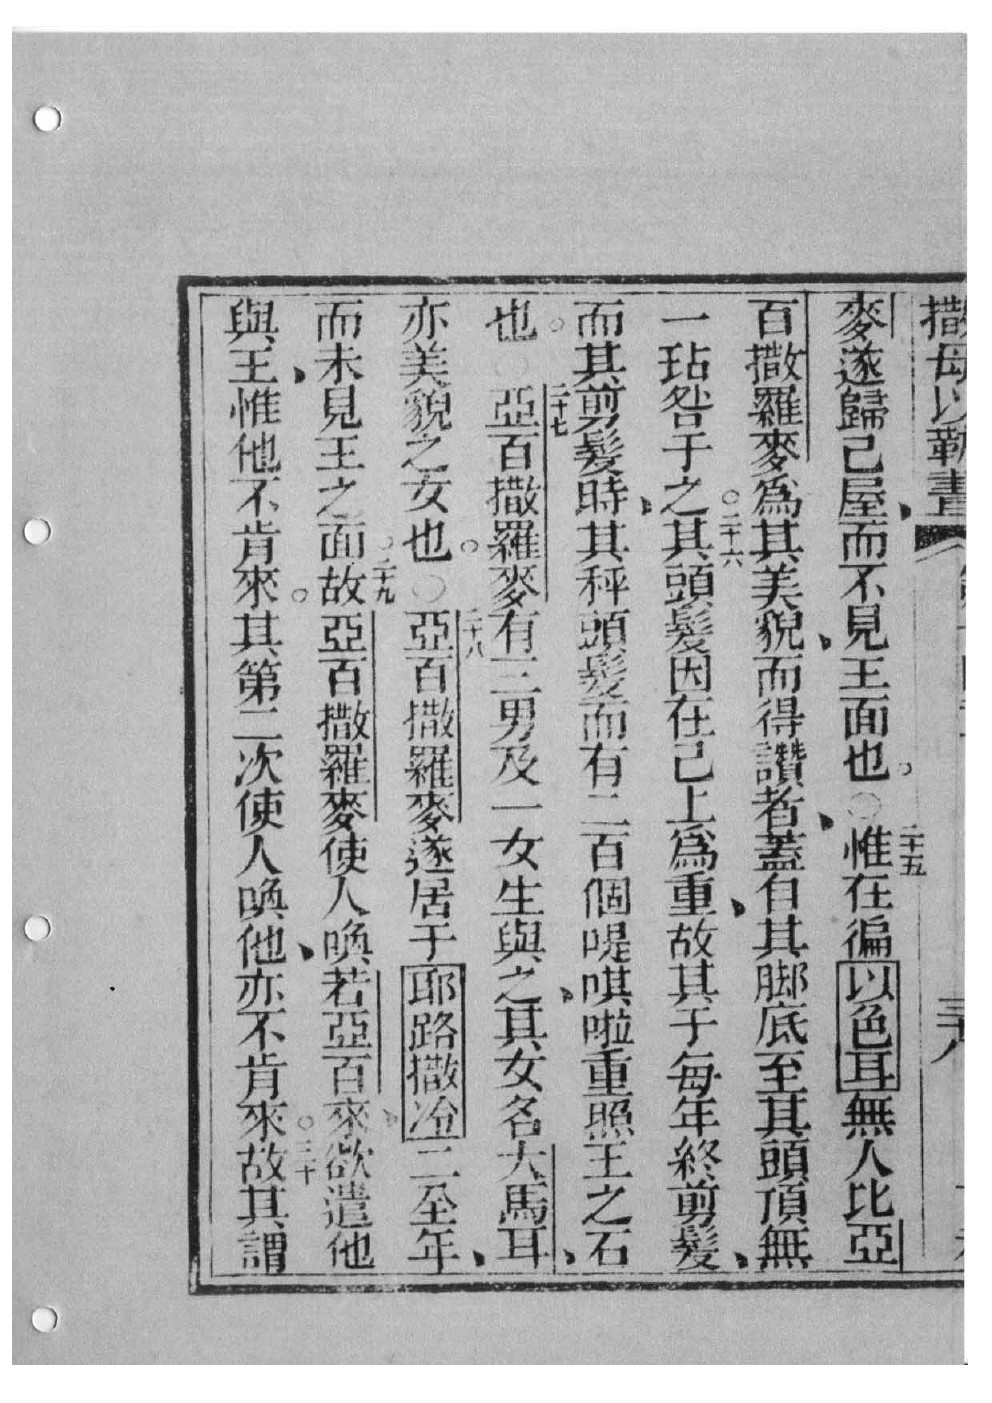 撒母以勒書
麥遂歸己屋、而不見王面也。○二十五惟在徧以色耳無人比亞
百撒羅麥爲其美貌、而得讚者、蓋自其脚底至其頭頂無
一玷咎于之。二十六其頭髮因在己上爲重、故其于每年終剪髮、
而其剪髮時、其秤頭髮而有二百個㖷唭啦重照王之石
也。○二十七亞百撒羅麥有三男及一女生與之、其女名大馬耳、
亦美貌之女也。○二十八亞百撒羅麥遂居于耶路撒冷二至年、
而未見王之面。二十九故亞百撒羅麥使人喚若亞百來、欲遣他
與王、惟他不肯來。其第二次使人喚他、亦不肯來。三十故其謂